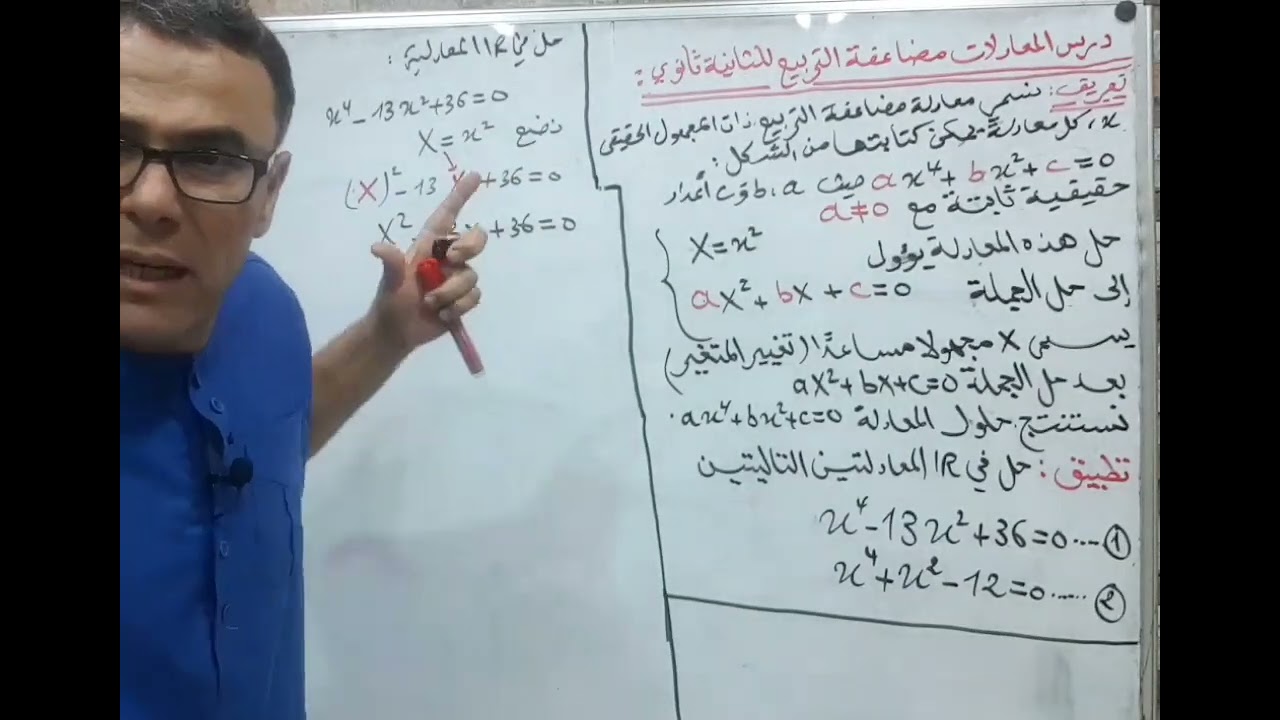 درس المعادلات مضاعفة التربيع للثانية ثانوي :
تعريف : نسمي معادلة مضاعفة التربيع ذات المجهول الحقيقي
x ، كل معادلة يمكن كتابتها من الشكل :
ax⁴ + bx² + c = 0 حيث a ، b و c أعداد
حقيقية ثابتة مع a≠0
حل هذه المعادلة يؤول X = x²
إلى حل الجملة aX² + bX + c = 0
يسمى X مجهولا مساعدًا (تغيير المتغير)
بعد حل الجملة aX²+bX+c=0
نستنتج حلول المعادلة ax⁴+bx²+c=0 .
تطبيق : حل في IR المعادلتين التاليتين
x⁴ - 13x² + 36 = 0 ... ①
x⁴ + x² - 12 = 0 ..... ②
حل في IR المعادلة :
x⁴ - 13x² + 36 = 0
نضع X = x²
(X)² - 13 X + 36 = 0
X² + 36 = 0